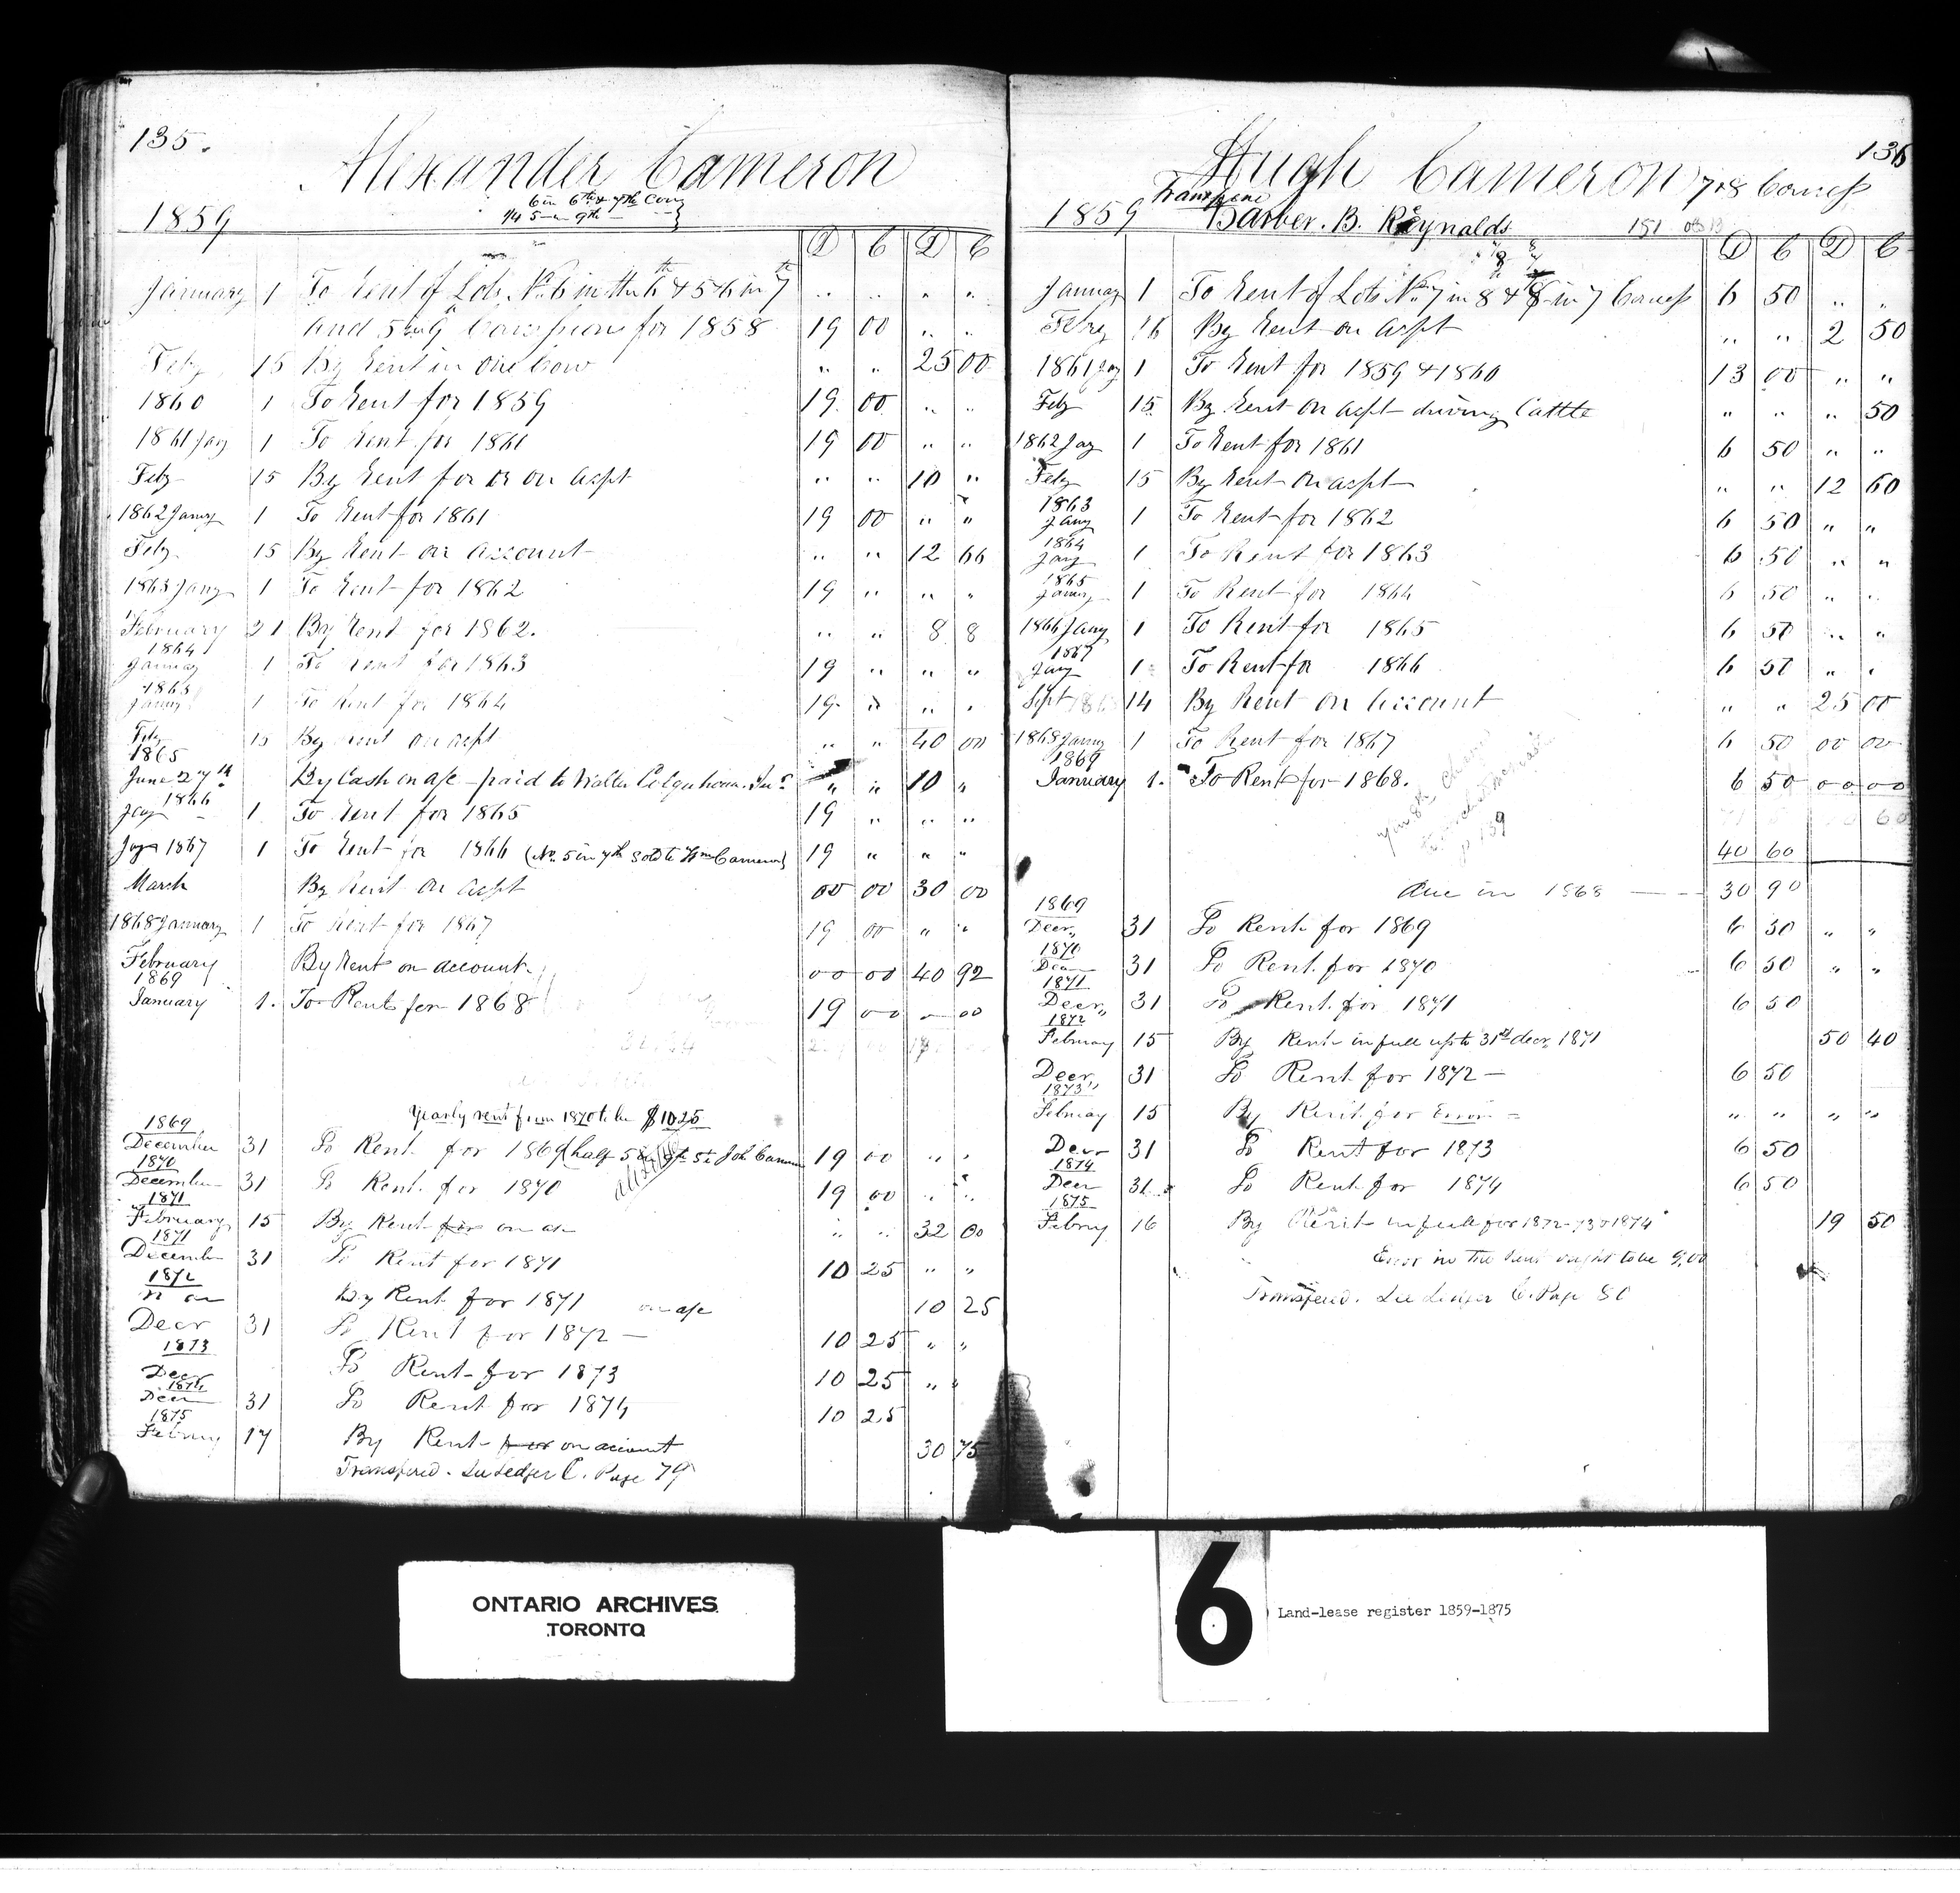 135.
Alexander Cameron
6 in 6th & 7th Con
1/4 5 in 9th
1859
D C D C
January 1 To Rent of Lots No. 6 in the 6th & 5 & 6 in 7th " " " "
and 5 in 9th Concessions for 1858 19 00 " "
Feby 15 By Rent in One Cow " " 25 00
1860 1 To Rent for 1859 19 00 " "
1861 Jay 1 To Rent for 1861 19 00 " "
Feby 15 By Rent for or on acpt " " 10 "
1862 Jany 1 To Rent for 1861 19 00 " "
Feby 15 By Rent on account " " 12 66
1863 Jany 1 To Rent for 1862 19 " " "
February 21 By Rent for 1862. " " 8 8
1864
January 1 To Rent for 1863 19 " " "
1865
Jany 1 To Rent for 1864 19 " " "
Feby 15 By Rent on acpt " " 40 00
1865
June 27th By Cash on a/c - paid to Walter " " 10 "
Jay 1866 1 To Rent for 1865 19 " " "
Jay 1867 1 To Rent for 1866 (No. 5 in 7th sold to Wm Cameron) 19 " " "
March By Rent on acpt 00 00 30 00
1868 January 1 To Rent for 1867 19 00 " "
February By Rent on account. 00 00 40 92
1869
January 1. To Rent for 1868 19 00 — 00
Yearly rent from 1870 to be $10.25
1869
December 31 To Rent for 1869 (half 5 in 9th to Joh Cameron 19 00 " "
1870
December 31 To Rent for 1870 19 00 " "
1871
February 15 By Rent for on a/c " " 32 00
1871
December 31 To Rent for 1871 10 25 " "
1872
By Rent for 1871 on a/c 10 25
Decr 31 To Rent for 1872 — 10 25 " "
1873
Decr To Rent for 1873 10 25 " "
1874
Decr 31 To Rent for 1874 10 25
1875
Febury 17 By Rent for on account 30 75
Transfered. See Ledger C. Page 79
136
Hugh Cameron 7 & 8 Concess
Barber. B. Reynalds 151
1859
D C D C
January 1 To Rent of Lots No. 7 in 8 & 8 in 7 Concess 6 50 " "
Febry 16 By Rent on acpt " " 2 50
1861 Jay 1 To Rent for 1859 & 1860 13 00 " "
Feby 15 By Rent on acpt driving Cattle " " " 50
1862 Jay 1 To Rent for 1861 6 50 " "
Feby 15 By Rent on acpt " " 12 60
1863
Jany 1 To Rent for 1862 6 50 " "
1864
Jany 1 To Rent for 1863 6 50 " "
1865
Jany 1 To Rent for 1864 6 50 " "
1866 Jany 1 To Rent for 1865 6 50 " "
1867
Jay 1 To Rent for 1866 6 50 " "
Sept 14 By Rent on Account " " 25 00
1868 Jany 1 To Rent for 1867 6 50 00 00
1869
January 1. To Rent for 1868. 6 50 00 00
40 60
due in 1868 — 30 90
1869
Decr 31 To Rent for 1869 6 50 " "
1870
Decr 31 To Rent for 1870 6 50 " "
1871
Decr 31 To Rent for 1871 6 50
1872
February 15 By Rent in full up to 31st decr 1871 50 40
Decr 31 To Rent for 1872 — 6 50
1873
Febuary 15 By Rent for Error — " " " "
Decr 31 To Rent for 1873 6 50
1874
Decr 31 To Rent for 1874 6 50
1875
Febury 16 By Rent in full for 1872-73 & 1874 19 50
Error in the Rent ought to be 9.00
Transfered. See Ledger C. Page 80
ONTARIO ARCHIVES
TORONTO
6
Land-lease register 1859-1875